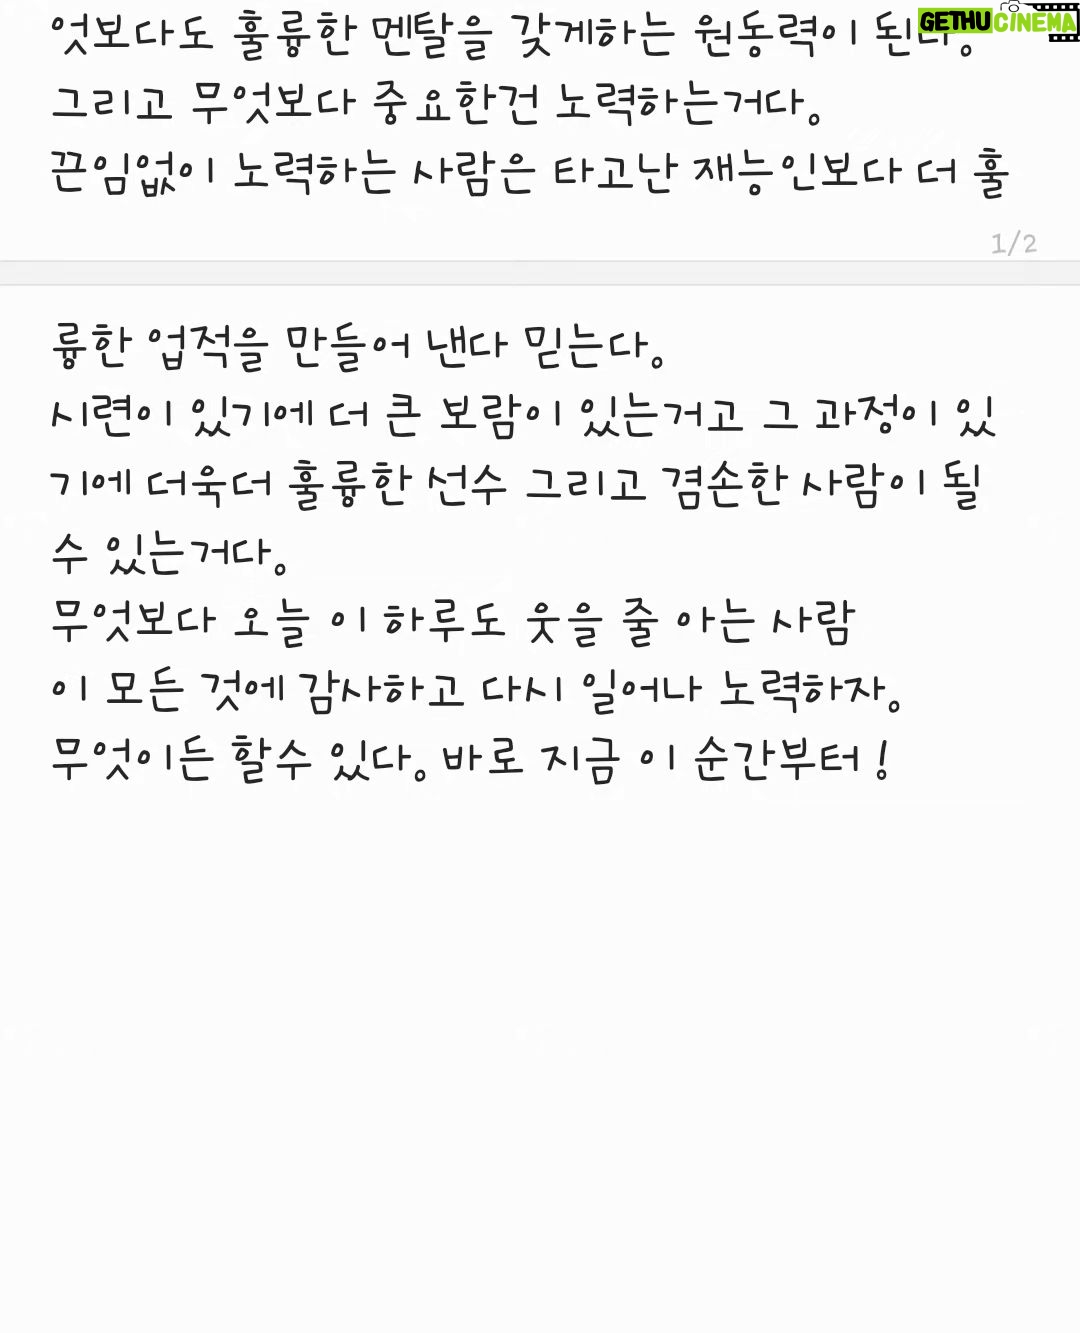 엇보다도 훌륭한 멘탈을 갖게하는 원동력이 된다.
GETHUCINEMA
그리고 무엇보다 중요한건 노력하는거다.
끈임없이 노력하는 사람은 타고난 재능인보다 더 훌
1/2
륭한 업적을 만들어 낸다 믿는다.
시련이 있기에 더 큰 보람이 있는거고 그 과정이 있
기에 더욱더 훌륭한 선수 그리고 겸손한 사람이 될
수 있는거다.
무엇보다 오늘 이 하루도 웃을 줄 아는 사람
이 모든 것에 감사하고 다시 일어나 노력하자.
무엇이든 할수 있다. 바로 지금 이 순간부터!